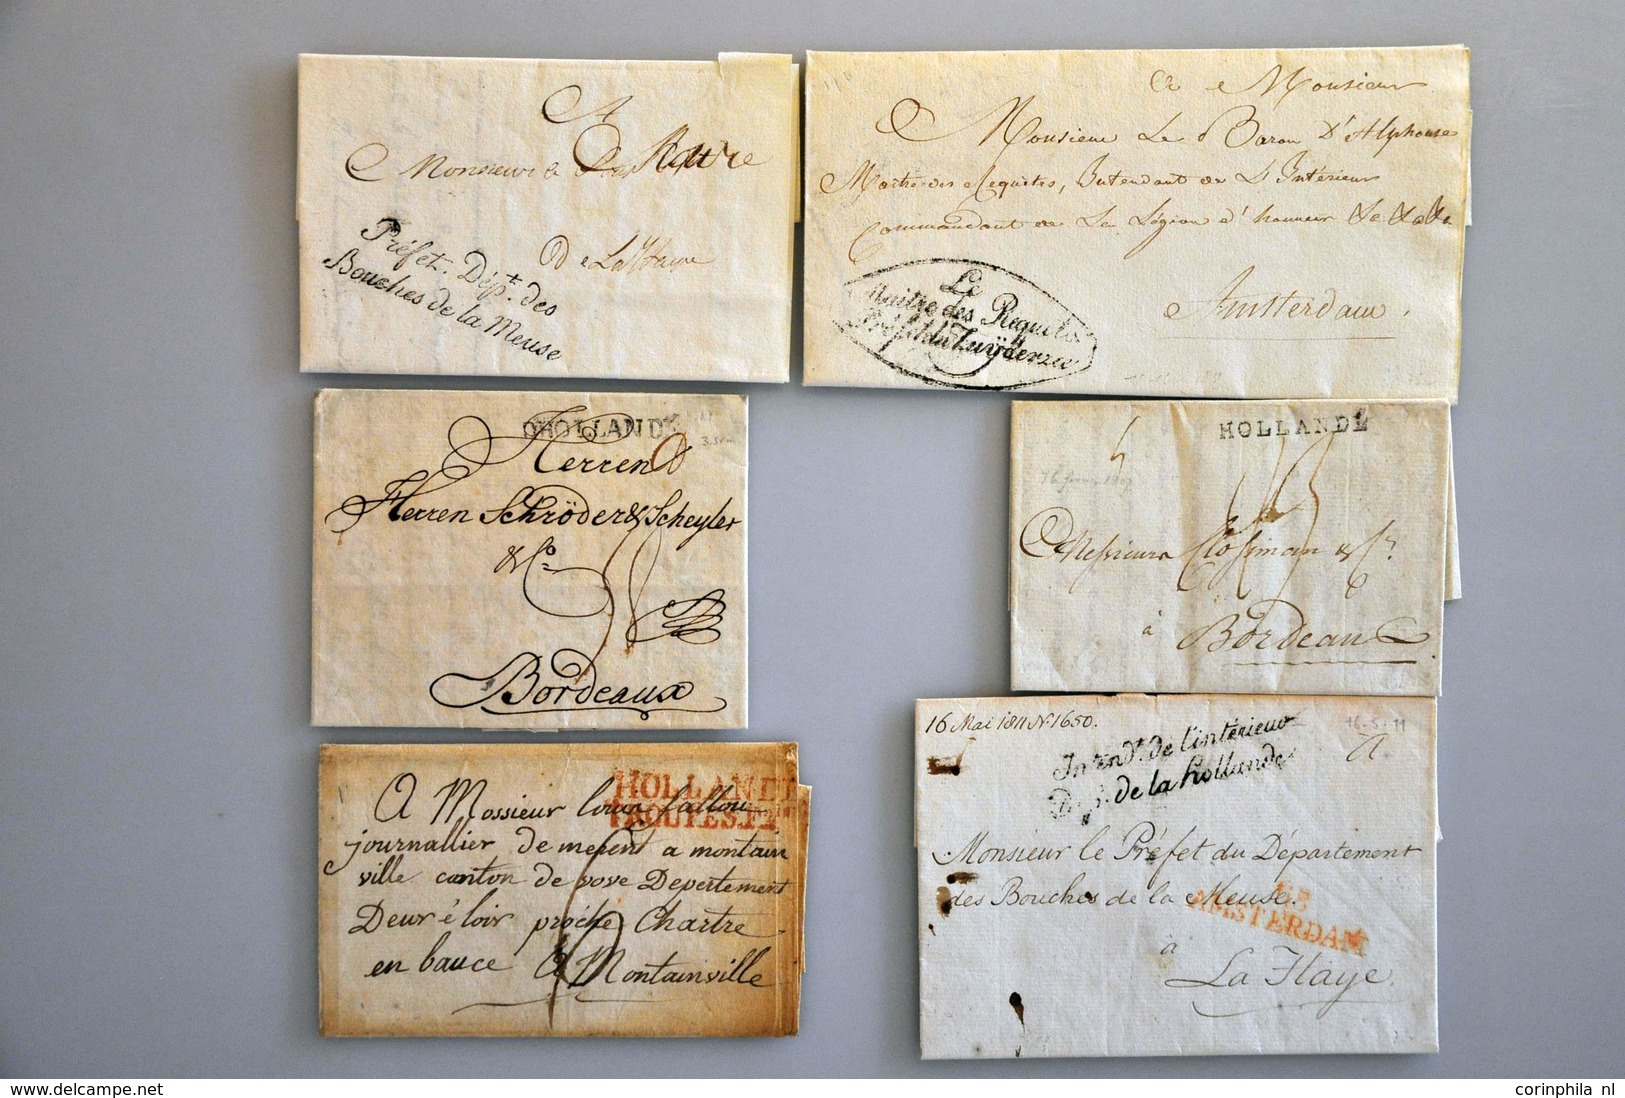 A
Monsieur
De La Haye
Préfet. Dépt. des
Bouches de la Meuse
Monsieur
Monsieur Le Baron D'Alphonse
Maitre des Requêtes, Intendant de L'Intérieur
Commandant de La Légion d'honneur &c &c &c
Amsterdam.
Le
Maitre des Requêtes
Préfet du Zuyderzee
HOLLANDE
Herren
Herren Schröder & Scheyler
& Co.
Bordeaux
HOLLANDE
Messieurs
à
Bordeaux
HOLLANDE
TROUPES.
A Mossieur louis fallou
journallier de meront a montain
ville canton de vove Departement
Deur é loir proche Chartre
en bauce A Montainville
16 Mai 1811 N 1650.
16-5-11
Intendt. de l'intérieur
de la hollande
Monsieur le Préfet du Département
des Bouches de la Meuse.
AMSTERDAM
à
La Haye.
corinphila nl